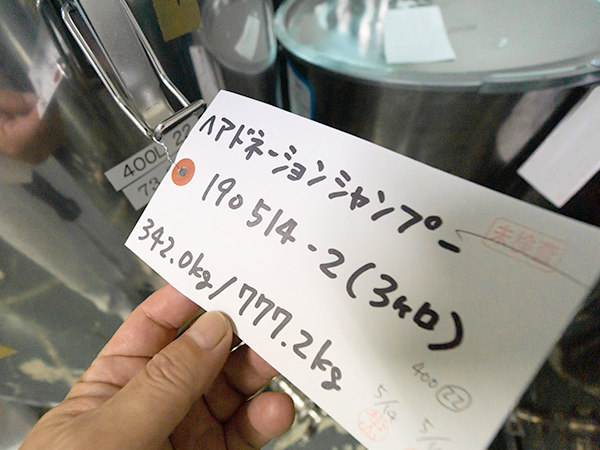 400L 22
73
ヘアドネーションシャンプー
190514-2(3ケロ)
342.0kg/777.2kg
未検査
400 22
5/14